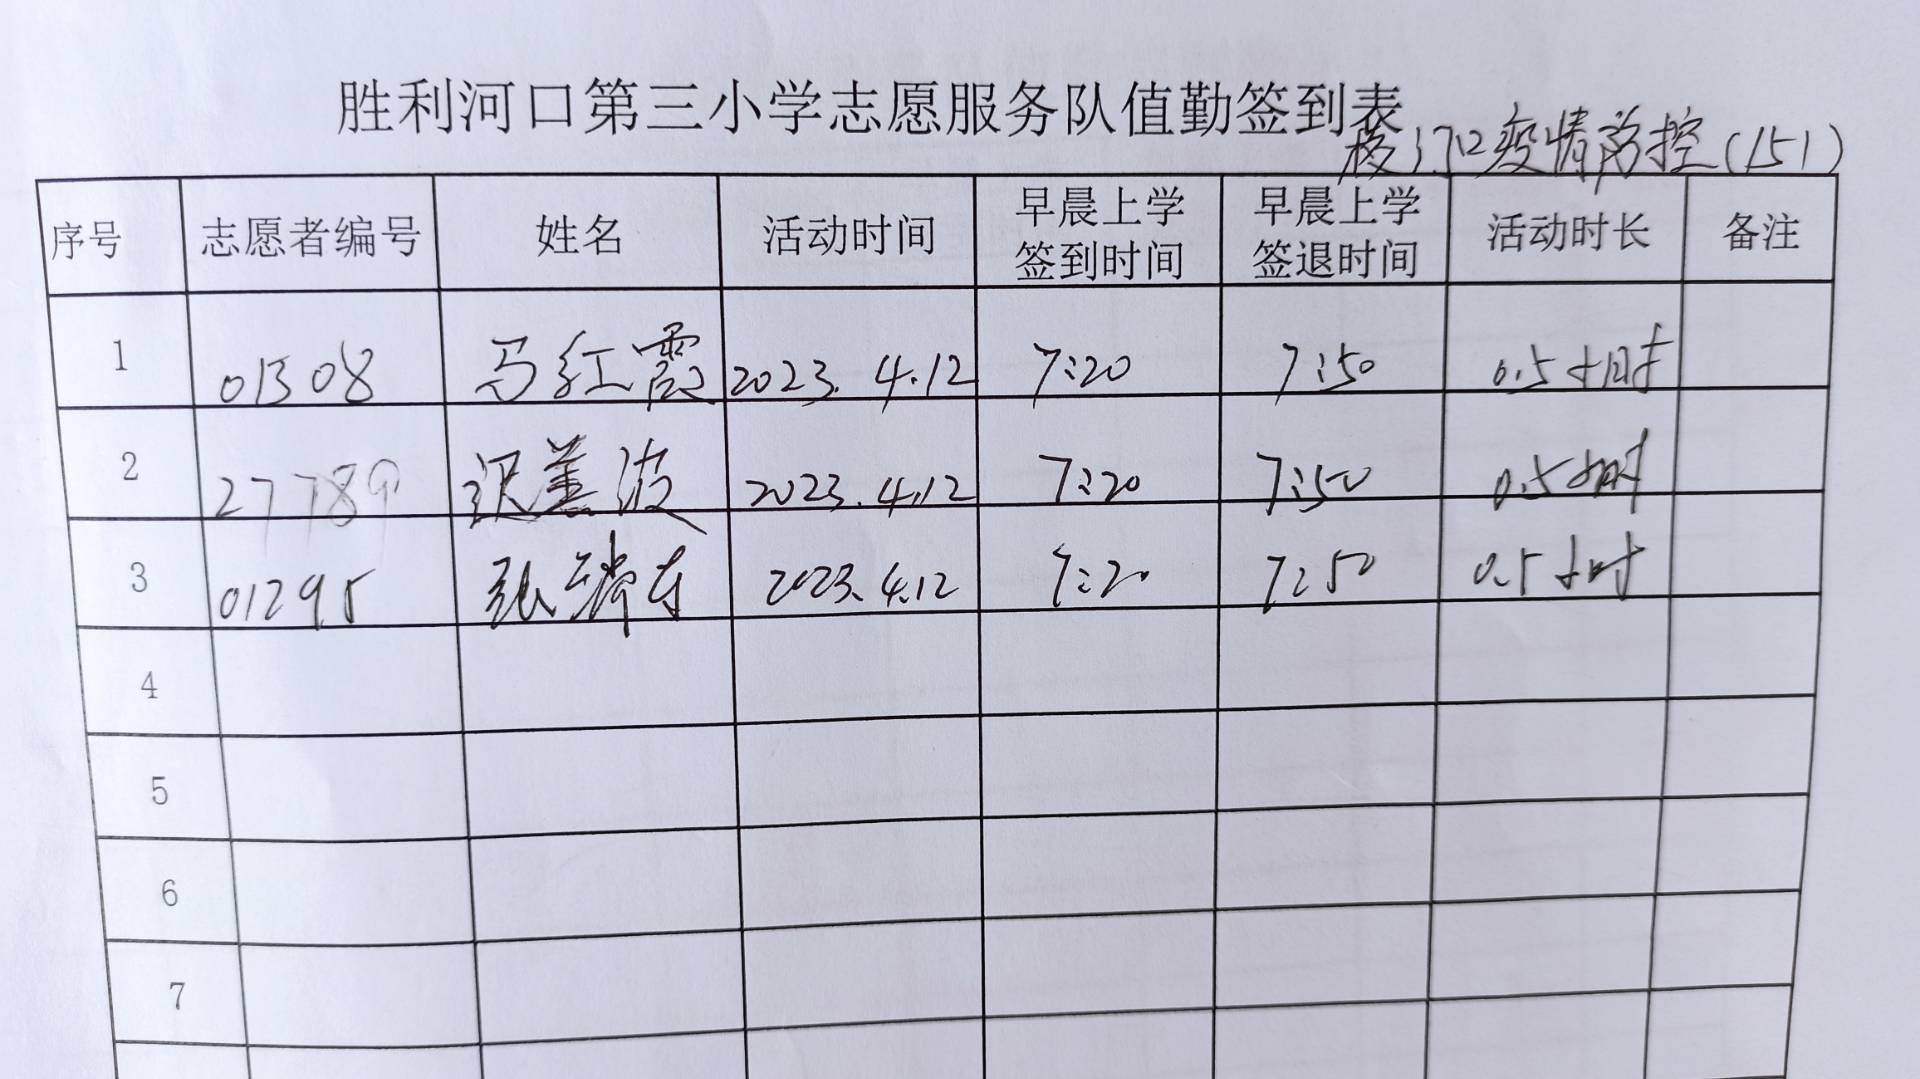 胜利河口第三小学志愿服务队值勤签到表
校门口疫情防控(151)
序号 志愿者编号 姓名 活动时间 早晨上学签到时间 早晨上学签退时间 活动时长 备注
1 01308 马红霞 2023.4.12 7:20 7:50 0.5小时
2 27789 2023.4.12 7:20 7:50 0.5小时
3 01295 张 2023.4.12 7:20 7:50 0.5小时
4
5
6
7